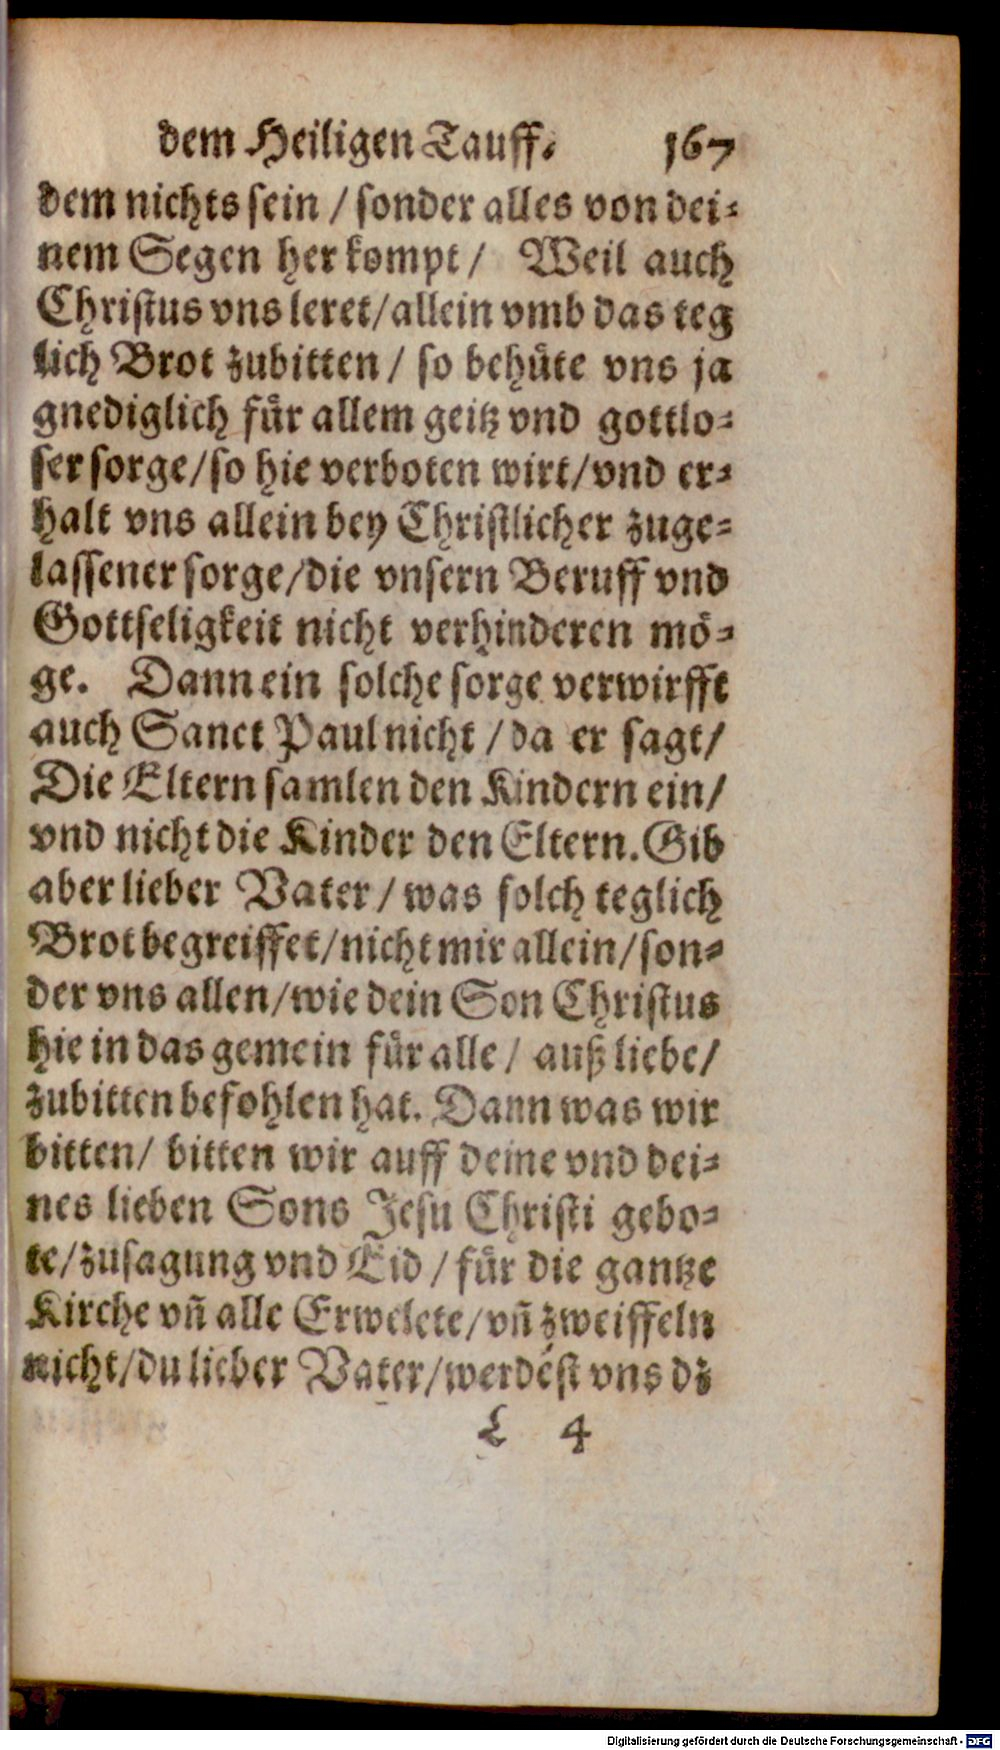 dem Heiligen Tauff. 167
dem nichts sein / sonder alles von dei-
nem Segen her kompt / Weil auch
Christus vns leret/allein vmb das teg
lich Brot zubitten / so behüte vns ja
gnediglich für allem geitz vnd gottlo-
ser sorge/so hie verboten wirt/vnd er-
halt vns allein bey Christlicher zuge-
lassener sorge/die vnsern Beruff vnd
Gottseligkeit nicht verhinderen mö-
ge. Dann ein solche sorge verwirfft
auch Sanct Paul nicht / da er sagt/
Die Eltern samlen den Kindern ein/
vnd nicht die Kinder den Eltern. Gib
aber lieber Vater / was solch teglich
Brot begreiffet/nicht mir allein/son-
der vns allen/wie dein Son Christus
hie in das gemein für alle / auß liebe/
zubitten befohlen hat. Dann was wir
bitten/ bitten wir auff deine vnd dei-
nes lieben Sons Jesu Christi gebo-
te/zusagung vnd Eid / für die gantze
Kirche vñ alle Erwelete/vñ zweiffeln
nicht/du lieber Vater/werdest vns dz
L 4
Digitalisierung gefördert durch die Deutsche Forschungsgemeinschaft - DFG